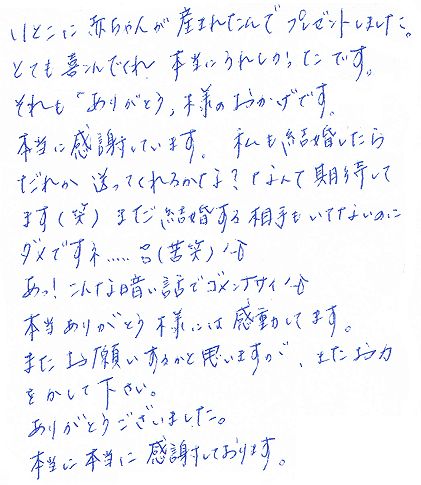 いとこに赤ちゃんが産まれたんでプレゼントしました。
とても喜んでくれ本当にうれしかったです。
それも"ありがとう"様のおかげです。
本当に感謝しています。私も結婚したら
だれか送ってくれるかな?なんて期待して
ます(笑)まだ結婚する相手もいてないのに
ダメですネ.....(苦笑)
あっ!こんな暗い話でゴメンナサイ
本当ありがとう様には感動してます。
またお願いするかと思いますが、またお力
をかして下さい。
ありがとうございました。
本当に本当に感謝しております。